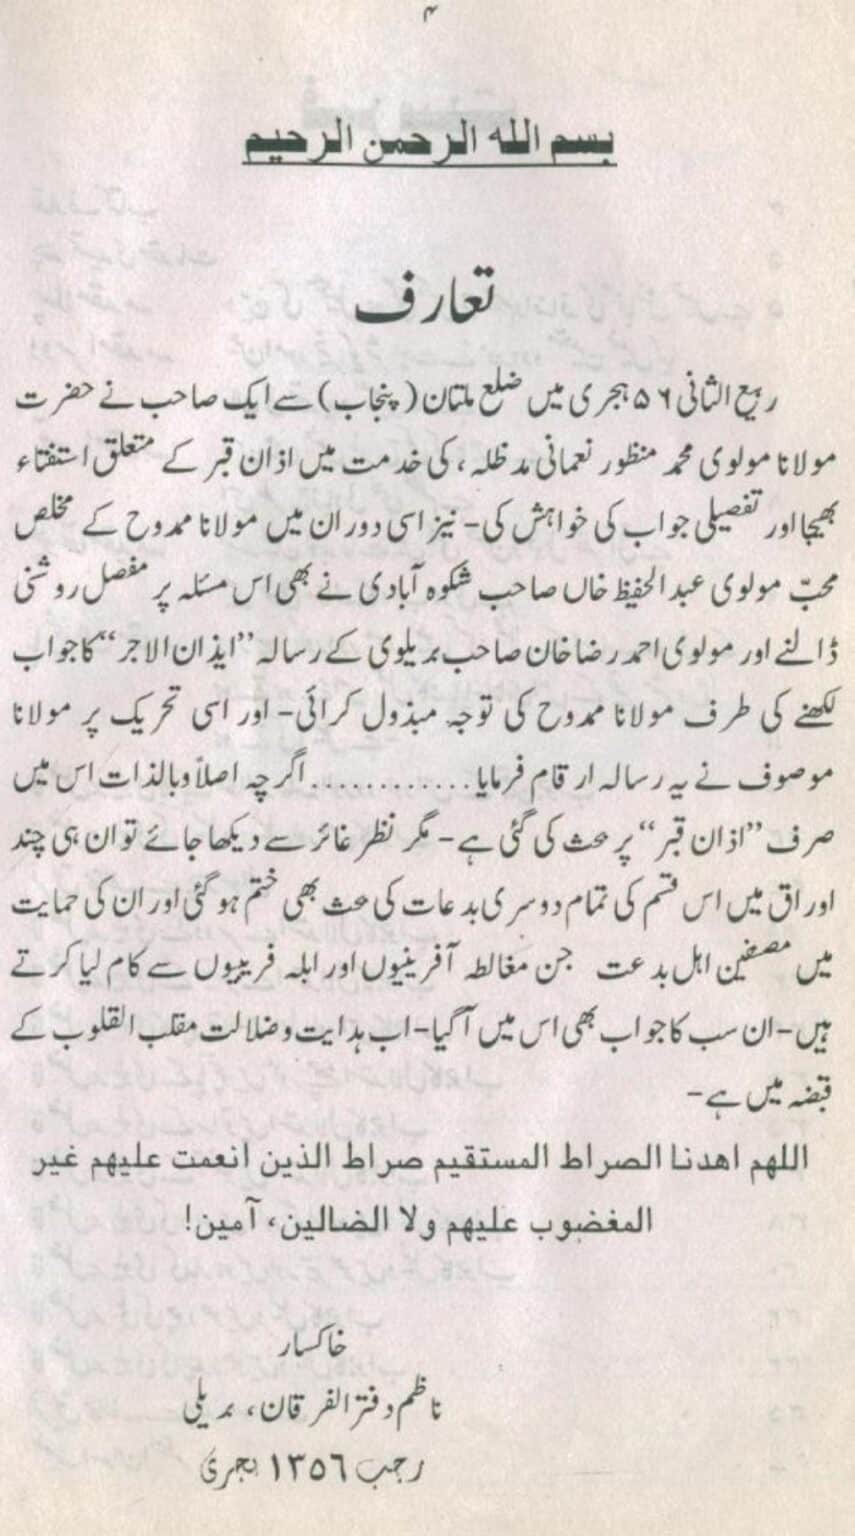 ۴
بسم الله الرحمن الرحيم
تعارف
ربیع الثانی ۵۶ ہجری میں ضلع ملتان (پنجاب) سے ایک صاحب نے حضرت
مولانا مولوی محمد منظور نعمانی مدظلہ، کی خدمت میں اذان قبر کے متعلق استفتاء
بھیجا اور تفصیلی جواب کی خواہش کی- نیز اسی دوران میں مولانا ممدوح کے مخلص
محبّ مولوی عبدالحفیظ خاں صاحب شکوہ آبادی نے بھی اس مسئلہ پر مفصل روشنی
ڈالنے اور مولوی احمد رضا خان صاحب بریلوی کے رسالہ "ایذان الاجر" کا جواب
لکھنے کی طرف مولانا ممدوح کی توجہ مبذول کرائی- اور اسی تحریک پر مولانا
موصوف نے یہ رسالہ ارقام فرمایا............ اگرچہ اصلاً وبالذات اس میں
صرف "اذان قبر" پر بحث کی گئی ہے- مگر نظر غائر سے دیکھا جائے تو ان ہی چند
اوراق میں اس قسم کی تمام دوسری بدعات کی بحث بھی ختم ہو گئی اور ان کی حمایت
میں مصنفین اہل بدعت جن مغالطہ آفرینیوں اور ابلہ فریبیوں سے کام لیا کرتے
ہیں- ان سب کا جواب بھی اس میں آگیا- اب ہدایت و ضلالت مقلب القلوب کے
قبضہ میں ہے-
اللهم اهدنا الصراط المستقيم صراط الذين انعمت عليهم غير
المغضوب عليهم ولا الضالين، آمين!
خاکسار
ناظم دفتر الفرقان، بریلی
رجب ۱۳۵۶ ہجری